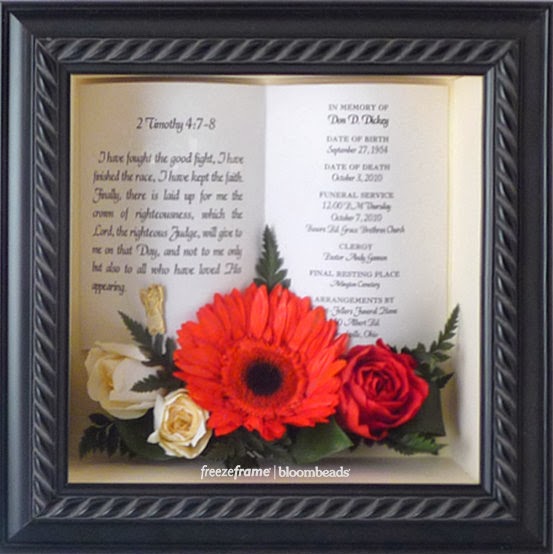 2 Timothy 4:7-8
I have fought the good fight, I have
finished the race, I have kept the faith.
Finally, there is laid up for me the
crown of righteousness, which the
Lord, the righteous Judge, will give to
me on that Day, and not to me only
but also to all who have loved His
appearing.
IN MEMORY OF
Don D. Dickey
DATE OF BIRTH
September 27, 1954
DATE OF DEATH
October 3, 2010
FUNERAL SERVICE
12:00 P.M Thursday
October 7, 2010
Rd. Grace Brethren Church
CLERGY
Pastor Andy
FINAL RESTING PLACE
Arlington Cemetery
ARRANGEMENTS BY
Funeral Home
Albert Rd.
Ohio
freezeframe | bloombeads